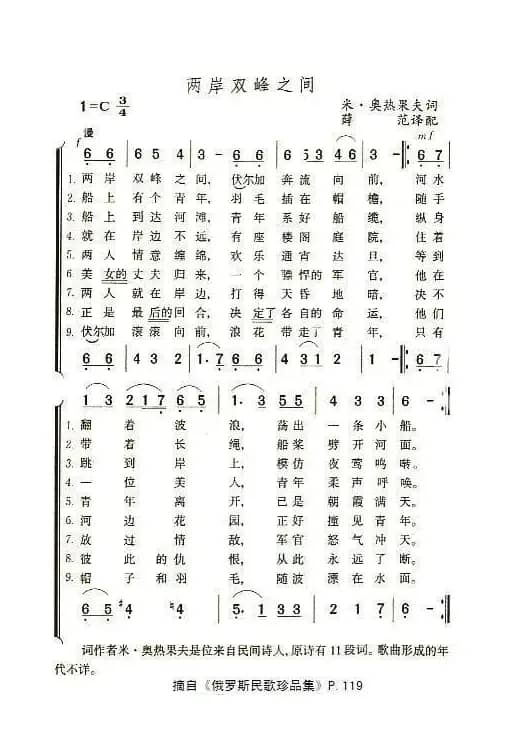 两岸双峰之间
1=C 3/4
米·奥热果夫词
薛 范译配
慢
f mf
6 6 | 6 5 4 | 3 - 6 6 | 6 53 46 | 3 - :‖: 6 7 |
1. 两岸 双峰之间, 伏尔加 奔流向前, 河水
2. 船上 有个青年, 羽毛 插在帽檐, 随手
3. 船上 到达河滩, 青年 系好船缆, 纵身
4. 就在 岸边不远, 有座 楼阁庭院, 住着
5. 两人 情意缠绵, 欢乐 通宵达旦, 等到
6. 美女的 丈夫归来, 一个 骠悍的军官, 他在
7. 两人 就在岸边, 打得 天昏地暗, 决不
8. 正是 最后的回合, 决定了 各自的命运, 他们
9. 伏尔加 滚滚向前, 浪花 带走了青年, 只有
6 6 | 6 3 2 | 1·7 6 6 | 6 431 2 | 1 - :‖: 6 7 |
1 3 | 2 217 6 | 1·3 5 5 | 3 4 3 | 6 - :‖
1. 翻着波浪, 荡出一条小船。
2. 带着长绳, 船桨劈开河面。
3. 跳到岸上, 模仿夜莺鸣啭。
4. 一位美人, 青年柔声呼唤。
5. 青年离开, 已是朝霞满天。
6. 河边花园, 正好撞见青年。
7. 放过情敌, 军官怒气冲天。
8. 彼此的仇恨, 从此永远了断。
9. 帽子和羽毛, 随波漂在水面。
6 65 | #4 #4 | 3·1 23 | 1·2 3 | 6 - :‖
词作者米·奥热果夫是位来自民间诗人,原诗有11段词。歌曲形成的年
代不详。
摘自《俄罗斯民歌珍品集》P.119